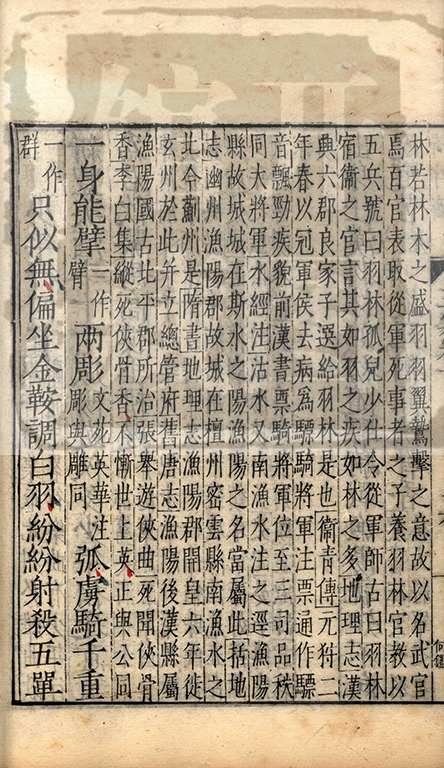 林若林木之盛羽羽翼鷙擊之意故以名武官
焉百官表取從軍死事者之子養羽林官教以
五兵號曰羽林孤兒少仕令從軍師古曰羽林
宿衞之官言其如羽之疾如林之多地理志漢
典六郡良家子選給羽林是也衞青傳元狩二
年春以冠軍侯去病爲驃騎將軍注票通作驃
音飄勁疾貌前漢書票騎將軍位至三司品秩
同大將軍水經注沽水又南漁水注之逕漁陽
縣故城城在斯水之陽漁陽之名當屬此括地
志幽州漁陽郡故城在檀州密雲縣南漁水之
北今薊州是隋書地理志漁陽郡開皇六年徙
玄州於此并立總管府舊唐志漁陽後漢縣屬
漁陽國古北平郡所治張舉遊俠曲死聞俠骨
香李白集縱死俠骨香不慚世上英正與公同
一身能擘一作臂兩彫文苑英華注彫與雕同弧虜騎千重
一作群只似無偏坐金鞍調白羽紛紛射殺五單